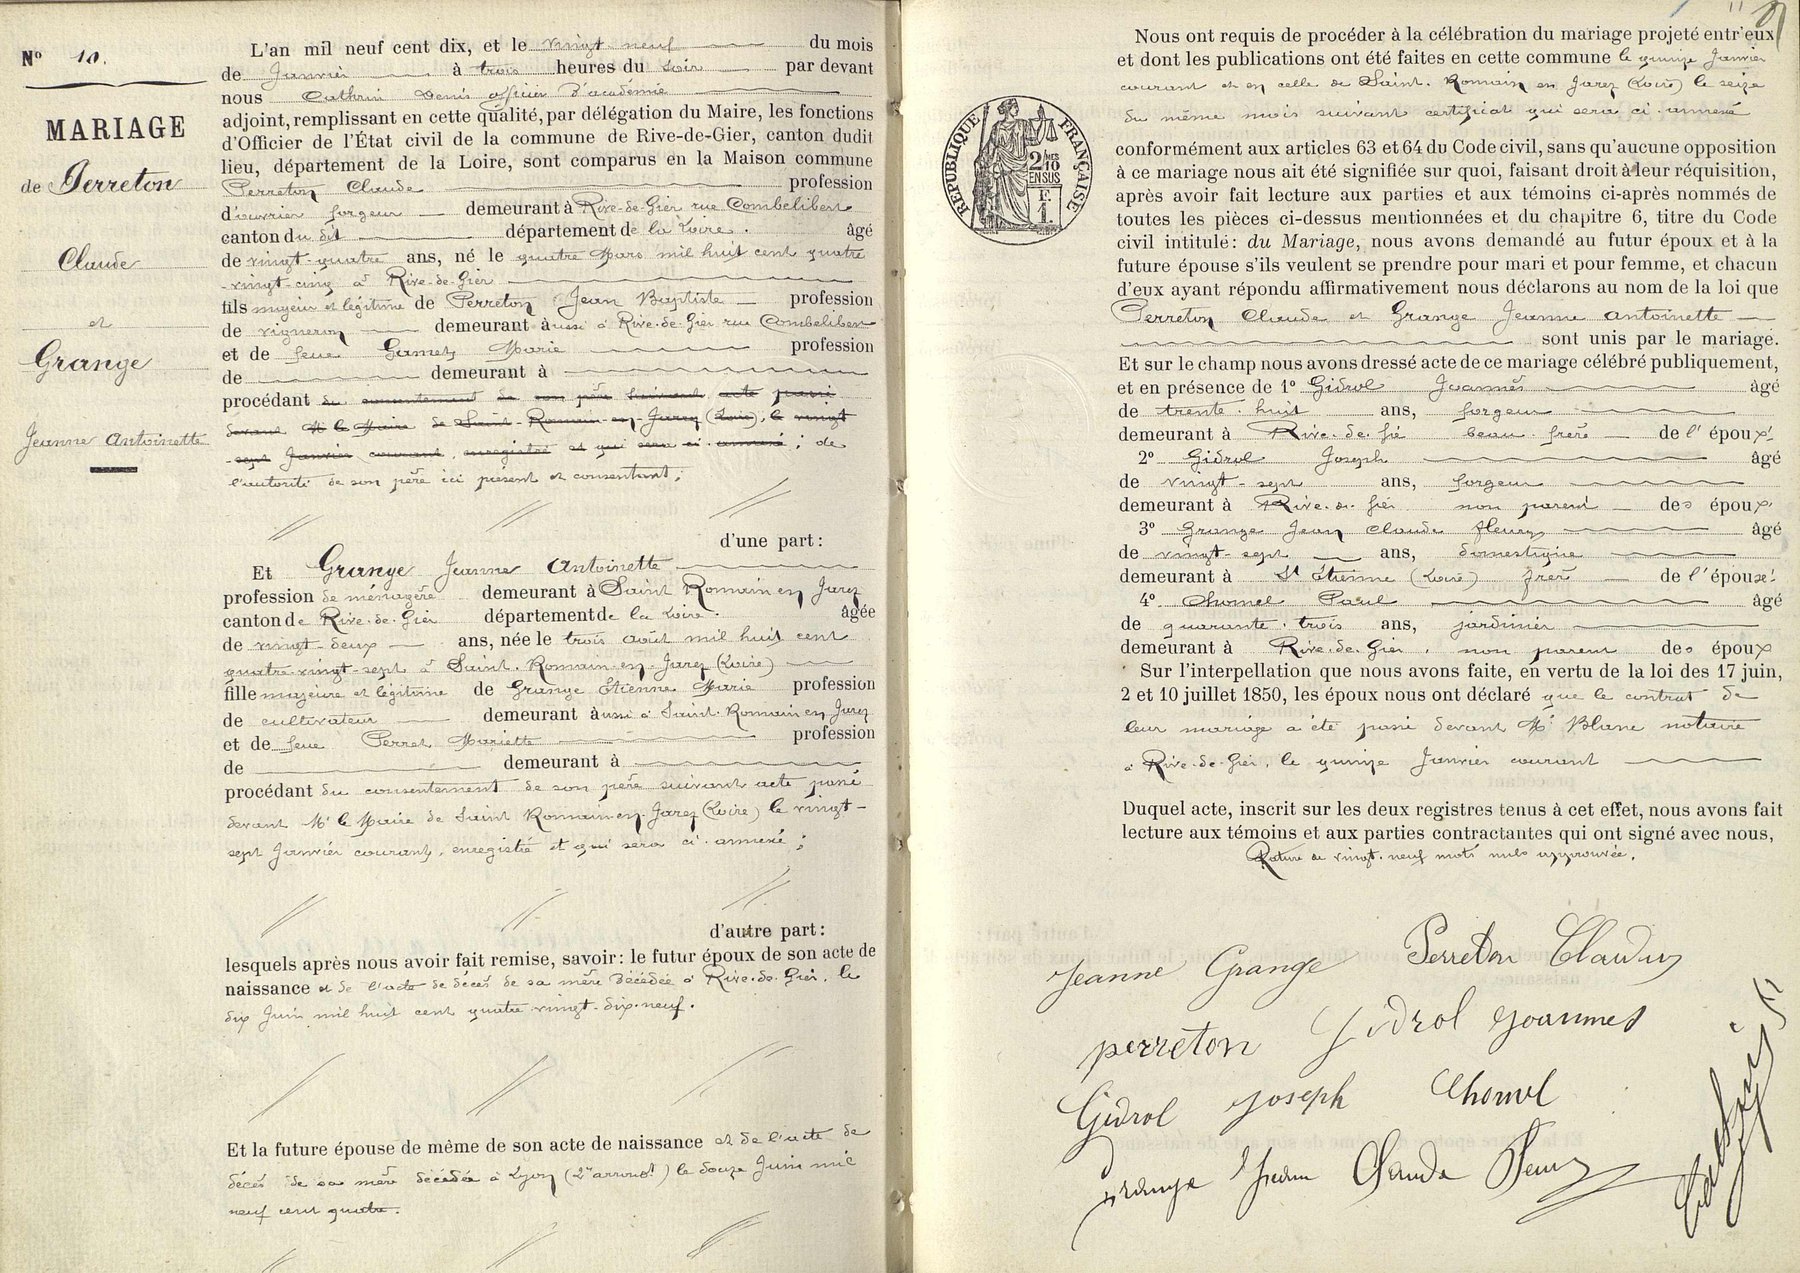 N° 10.
MARIAGE
de Perreton
Claude
et
Grange
Jeanne Antoinette
L'an mil neuf cent dix, et le vingt neuf du mois
de Janvier à trois heures du soir par devant
nous Cathrin Denis officier d'académie
adjoint, remplissant en cette qualité, par délégation du Maire, les fonctions
d'Officier de l'État civil de la commune de Rive-de-Gier, canton dudit
lieu, département de la Loire, sont comparus en la Maison commune
Perreton Claude profession
d'ouvrier forgeur demeurant à Rive-de-Gier rue Combelibert
canton du dit département de la Loire. âgé
de vingt-quatre ans, né le quatre Mars mil huit cent quatre
-vingt-cinq à Rive-de-Gier
fils majeur et légitime de Perreton Jean Baptiste profession
de vigneron demeurant aussi à Rive-de-Gier rue Combelibert
et de feue Gamet Marie profession
de demeurant à
procédant du consentement de son père suivant acte passé
devant M. le Maire de Saint Romain-en-Jarez (Loire), le vingt
-sept Janvier courant, enregistré et qui sera ci annexé ; de
l'autorité de son père ici présent et consentant ;
d'une part :
Et Grange Jeanne Antoinette
profession de ménagère demeurant à Saint Romain en Jarez
canton de Rive-de-Gier département de la Loire. âgée
de vingt-deux ans, née le trois août mil huit cent
quatre-vingt-sept à Saint-Romain-en-Jarez (Loire)
fille majeure et légitime de Grange Etienne Marie profession
de cultivateur demeurant aussi à Saint-Romain en Jarez
et de feue Perret Mariette profession
de demeurant à
procédant du consentement de son père suivant acte passé
devant Mr le Maire de Saint Romain-en-Jarez (Loire) le vingt-
sept Janvier courant, enregistré et qui sera ci-annexé ;
d'autre part :
lesquels après nous avoir fait remise, savoir : le futur époux de son acte de
naissance et de l'acte de décès de sa mère décédée à Rive-de-Gier, le
dix Juin mil huit cent quatre vingt-dix-neuf.
Et la future épouse de même de son acte de naissance et de l'acte de
décès de sa mère décédée à Lyon (2e arrondt) le douze Juin mil
neuf cent quatre.
Nous ont requis de procéder à la célébration du mariage projeté entr'eux
et dont les publications ont été faites en cette commune le quinze Janvier
courant et en celle de Saint-Romain en Jarez (Loire) le seize
du même mois suivant certificat qui sera ci annexé
RÉPUBLIQUE FRANÇAISE
2/10 MES
EN SUS
F.
1
conformément aux articles 63 et 64 du Code civil, sans qu'aucune opposition
à ce mariage nous ait été signifiée sur quoi, faisant droit à leur réquisition,
après avoir fait lecture aux parties et aux témoins ci-après nommés de
toutes les pièces ci-dessus mentionnées et du chapitre 6, titre du Code
civil intitulé : du Mariage, nous avons demandé au futur époux et à la
future épouse s'ils veulent se prendre pour mari et pour femme, et chacun
d'eux ayant répondu affirmativement nous déclarons au nom de la loi que
Perreton Claude et Grange Jeanne Antoinette
sont unis par le mariage.
Et sur le champ nous avons dressé acte de ce mariage célébré publiquement,
et en présence de 1° Gidrol Joannès âgé
de trente-huit ans, forgeur
demeurant à Rive-de-Gié beau-frère de l'époux
2° Gidrol Joseph âgé
de vingt-sept ans, forgeur
demeurant à Rive-de-Gier non parent des époux
3° Grange Jean Claude Fleury âgé
de vingt-sept ans, domestique
demeurant à St Etienne (Loire) frère de l'épouse
4° Chomel Paul âgé
de quarante-trois ans, jardinier
demeurant à Rive-de-Gier, non parent des époux
Sur l'interpellation que nous avons faite, en vertu de la loi des 17 juin,
2 et 10 juillet 1850, les époux nous ont déclaré que le contrat de
leur mariage a été passé devant Me Blanc notaire
à Rive-de-Gier, le quinze Janvier courant
Duquel acte, inscrit sur les deux registres tenus à cet effet, nous avons fait
lecture aux témoins et aux parties contractantes qui ont signé avec nous,
Rature de vingt-neuf mots nuls approuvée.
Jeanne Grange Perreton Claudius
perreton Gidrol Joannes
Gidrol Joseph Chomel
grange Jean Claude Fleury